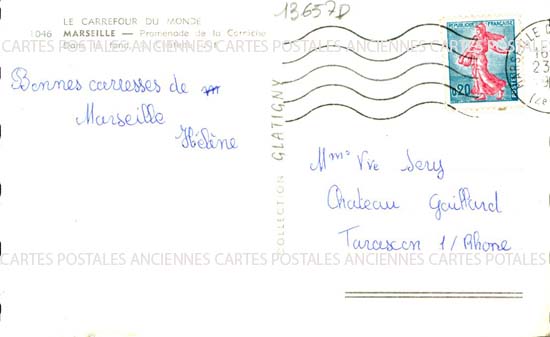 13657D
LE CARREFOUR DU MONDE
1046 MARSEILLE — Promenade de la Corniche
Dans le fond, le Château d'If
Bonnes caresses de
Marseille
Hélène
COLLECTION GLATIGNY
REPUBLIQUE FRANÇAISE
0,20
MARSEILLE
16
23
Mme Vve Sery
Chateau Gaillard
Tarascon s/Rhone
CARTES POSTALES ANCIENNES CARTES POSTALES ANCIENNES CARTES POSTALES
CARTES POSTALES ANCIENNES CARTES POSTALES ANCIENNES CARTES POSTALES